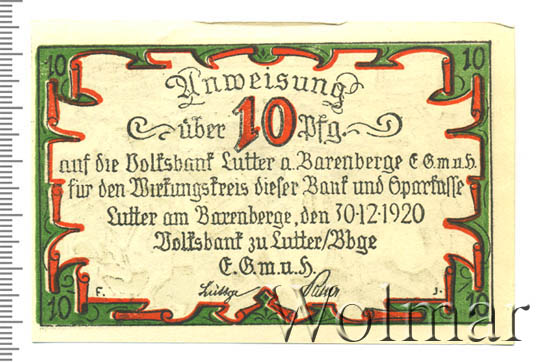 10 10
Anweisung
über 10 Pfg.
auf die Volksbank Lutter a. Barenberge E.G.m.u.H.
für den Wirkungskreis dieser Bank und Sparkasse
Lutter am Barenberge, den 30·12·1920
Volksbank zu Lutter/Bbge
E.G.m.u.H.
F. J.
10 10
Wolmar